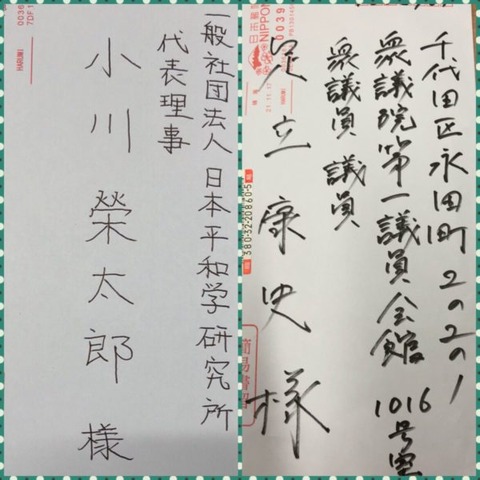 一般社団法人 日本平和学研究所
代表理事
小川榮太郎 様
千代田区永田町 2の2の1
衆議院第一議員会館 1016号室
衆議員 議員
足立康史様
NIPPON
380-32-20860-5
簡易書留